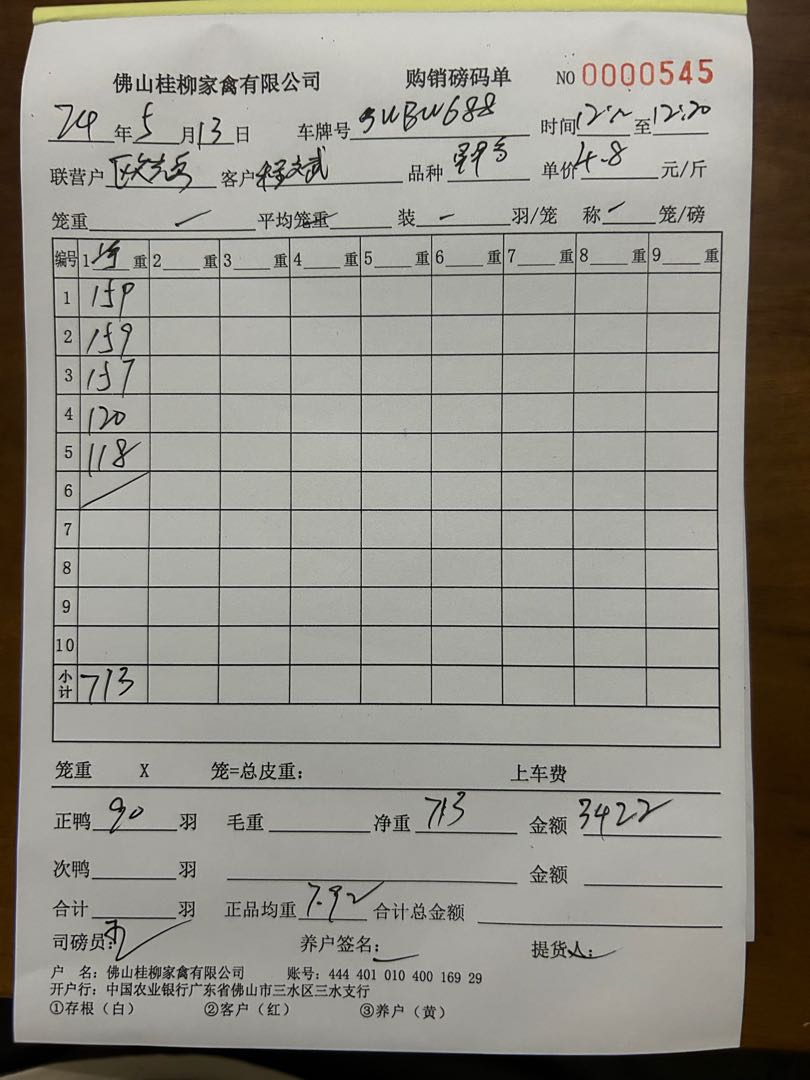 佛山桂柳家禽有限公司 购销磅码单 NO 0000545
24年5月13日 车牌号 时间 至12:20
联营户 客户 品种 单价4.8元/斤
笼重 一 平均笼重 装 一 羽/笼 称 一 笼/磅
编号 1 重 2 重 3 重 4 重 5 重 6 重 7 重 8 重 9 重
1 159
2 159
3 157
4 120
5 118
6
7
8
9
10
小计 713
笼重 X 笼=总皮重： 上车费
正鸭 90 羽 毛重 净重 713 金额 3422
次鸭 羽 金额
合计 羽 正品均重 7.92 合计总金额
司磅员： 养户签名： 提货人：
户 名：佛山桂柳家禽有限公司 账号：444 401 010 400 169 29
开户行：中国农业银行广东省佛山市三水区三水支行
①存根（白） ②客户（红） ③养户（黄）